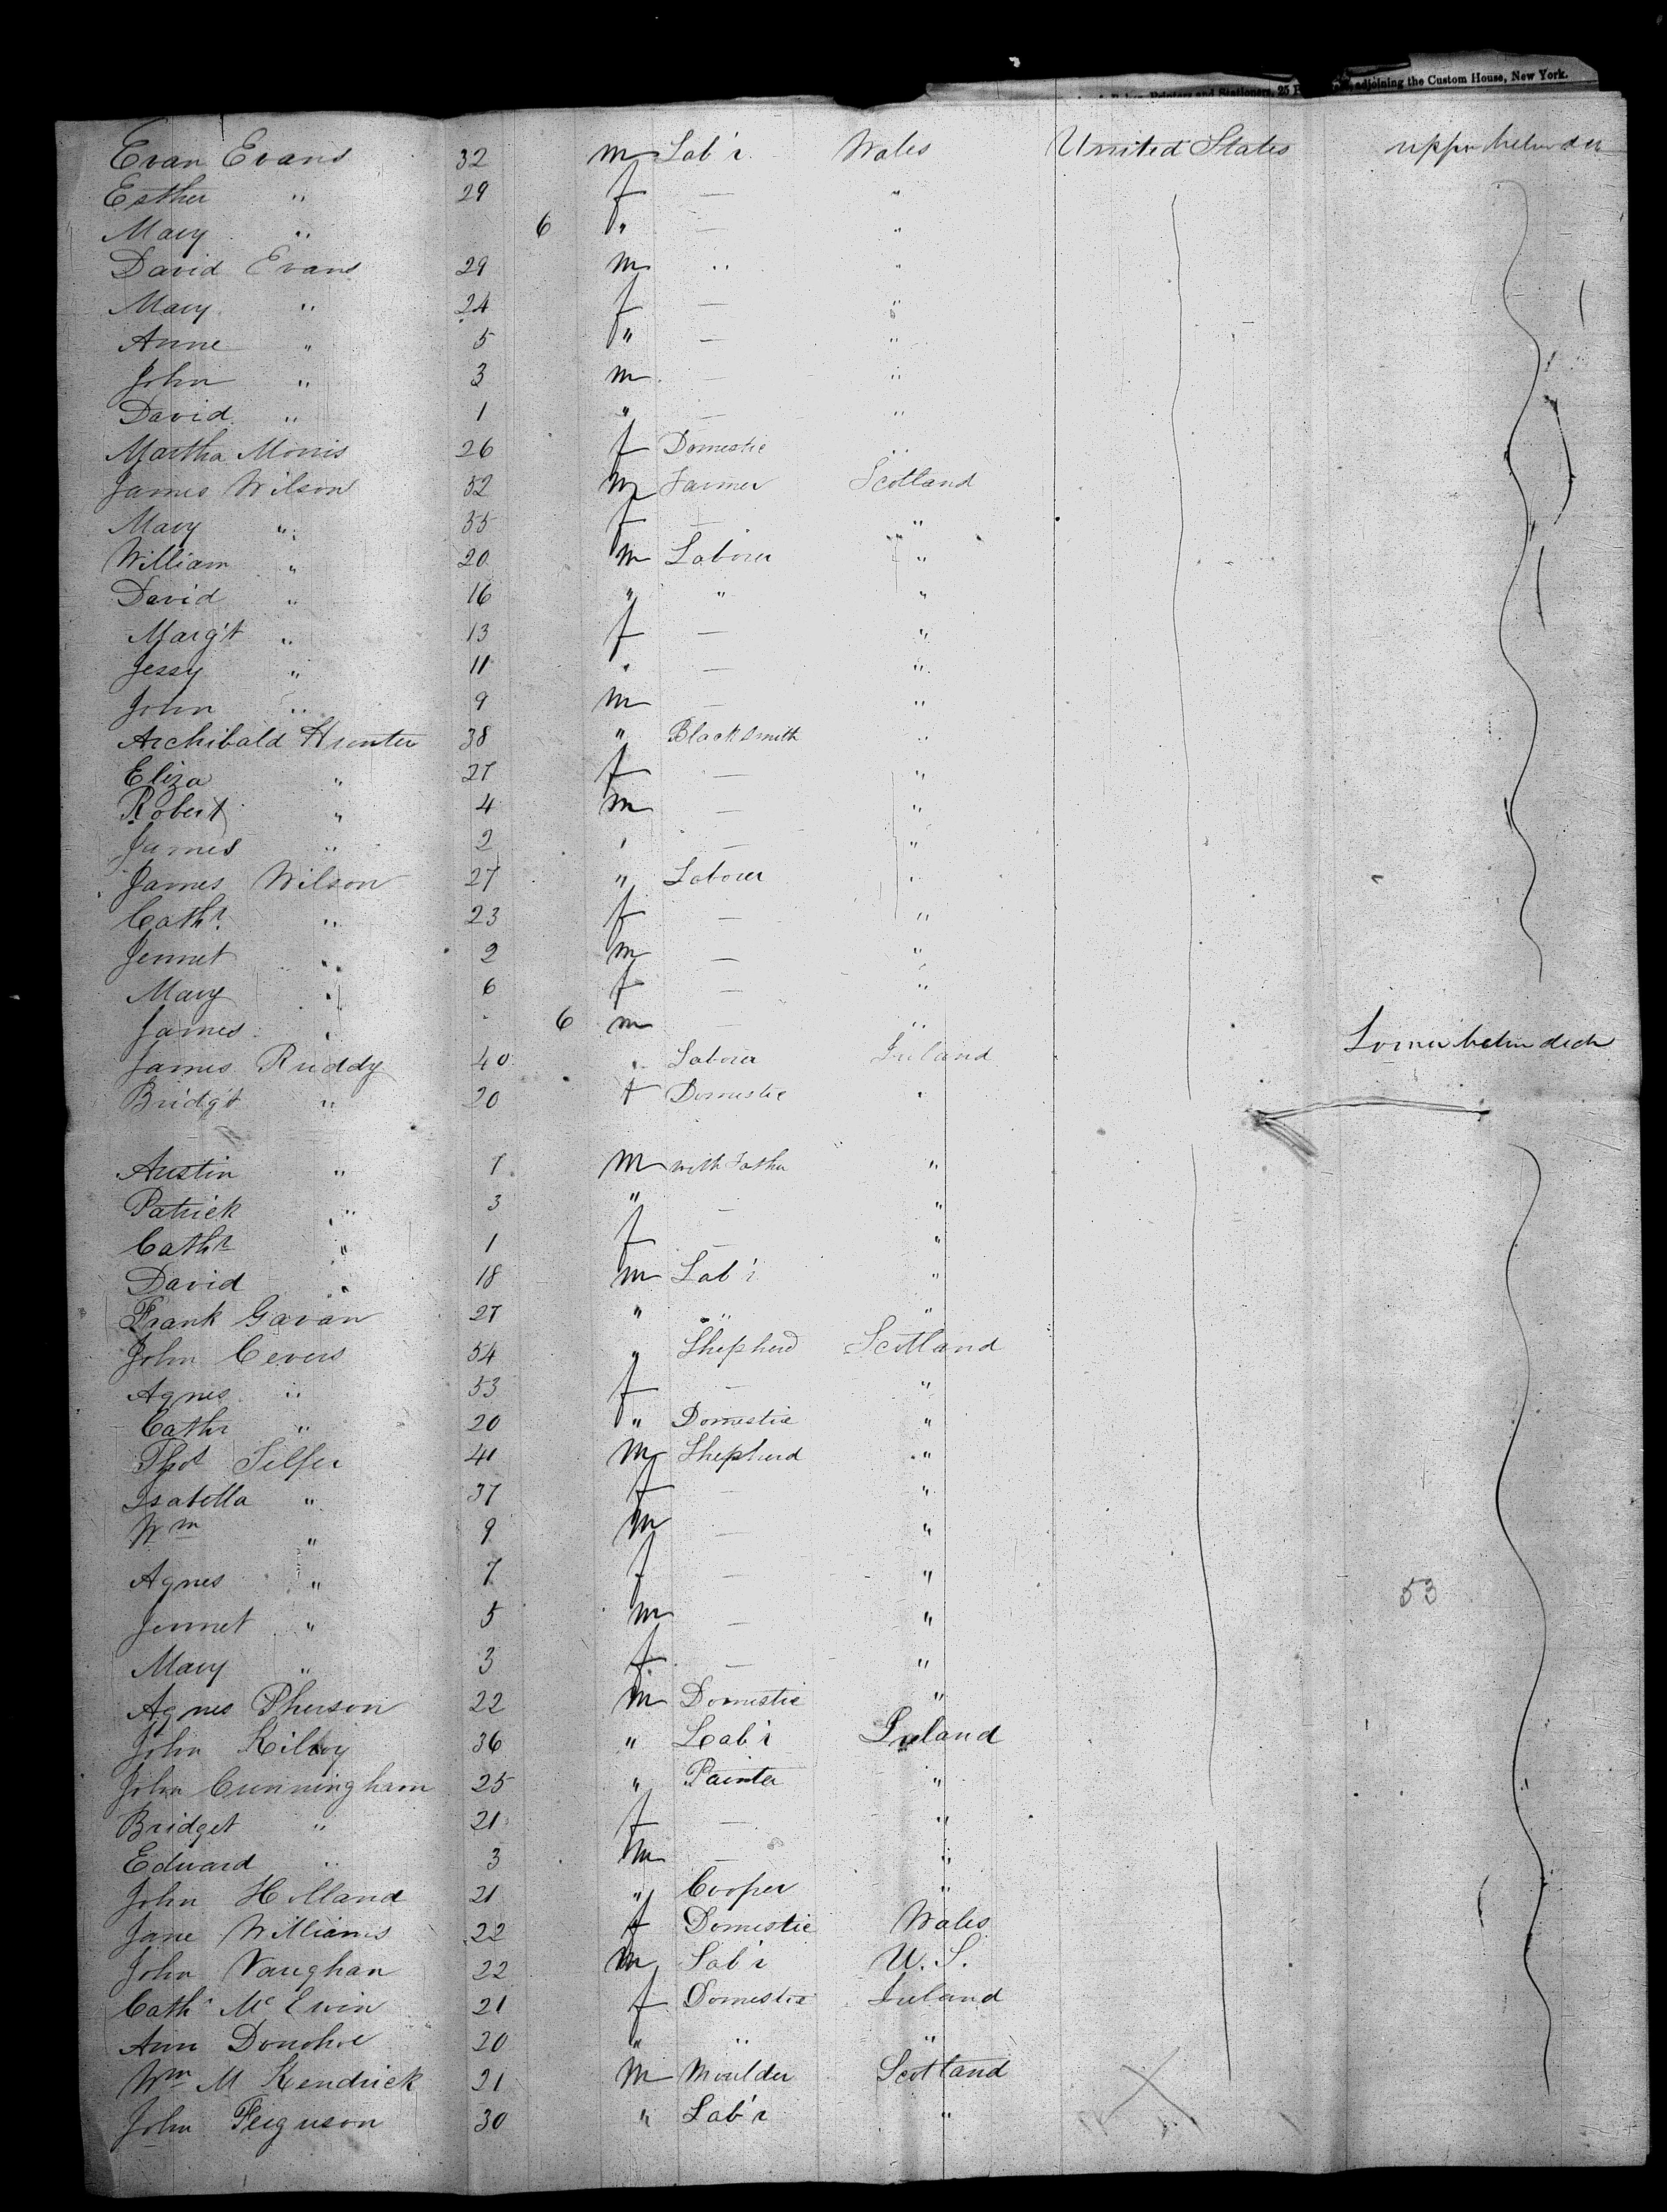 Printers and Stationers, 25 adjoining the Custom House, New York.
Evan Evans 32 m Lab'r. Wales United States upper between deck
Esther " 29 f — "
Mary " 6 " — "
David Evans 29 m " "
Mary " 24 f — "
Anne " 5 " — "
John " 3 m — "
David " 1 " — "
Martha Morris 26 f Domestic "
James Wilson 52 m Farmer Scotland
Mary " 35 f — "
William " 20 m Laborer "
David " 16 " " "
Marg't " 13 f — "
Jessy " 11 " — "
John " 9 m — "
Archibald Hunter 38 " Blacksmith "
Eliza " 27 f — "
Robert " 4 m — "
James " 2 " — "
James Wilson 27 " Laborer "
Cathr " 23 f — "
Jennet " 2 m — "
Mary " 6 f — "
James " 6 m — "
James Ruddy 40 " Laborer Ireland Lower between deck
Bridg't " 20 f Domestic "
Austin " 7 m with Father "
Patrick " 3 " — "
Cathr " 1 f — "
David " 18 m Lab'r "
Frank Gavan 27 " " "
John Cevers 54 " Shepherd Scotland
Agnes " 53 f — "
Cathr " 20 " Domestic "
Thos Telfer 41 m Shepherd "
Isabella " 37 f — "
Wm " 9 m — "
Agnes " 7 f — " 53
Jennet " 5 m — "
Mary " 3 f — "
Agnes Pherson 22 m Domestic "
John 36 " Lab'r Ireland
John Cunningham 25 " Painter "
Bridget " 21 f — "
Edward " 3 m — "
John Holland 21 " Cooper "
Jane Williams 22 f Domestic Wales
John Vaughan 22 m Lab'r U.S.
Cathr Mc Ewin 21 f Domestic Ireland
Ann Donohoe 20 " " "
Wm M Kendrick 21 m Moulder Scotland
John Ferguson 30 " Lab'r "